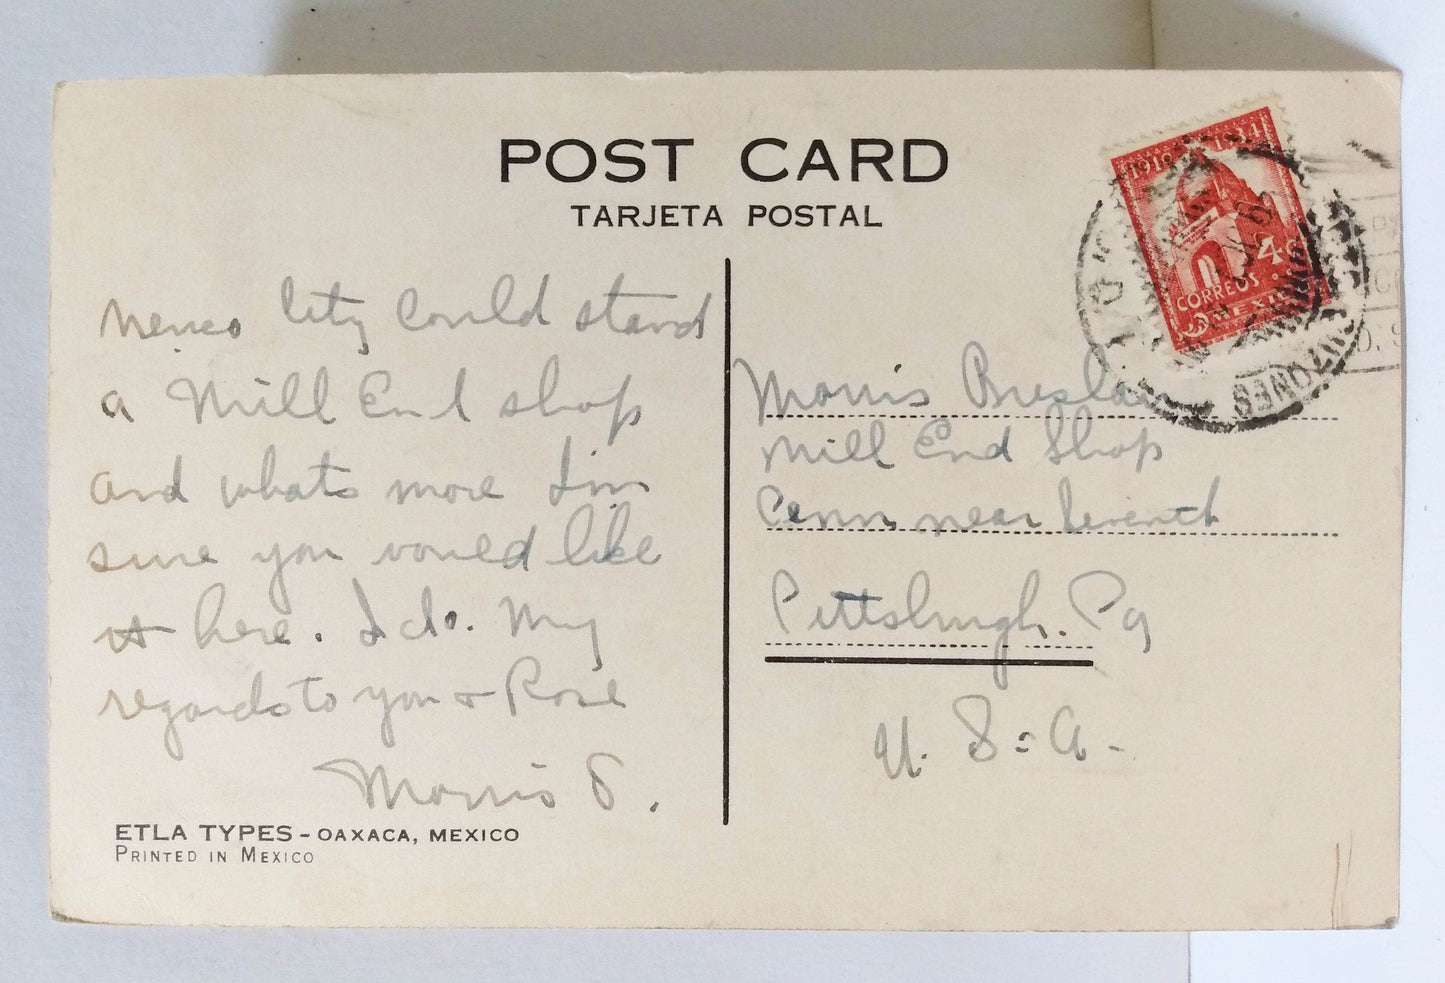 POST CARD
TARJETA POSTAL
1934
4c
CORREOS
MEXICO
BUZONES
Mexico City could stand
a Mill End shop
and whats more I'm
sure you would like
it here. I do. My
regards to you + Rose
Morris S.
ETLA TYPES - OAXACA, MEXICO
PRINTED IN MEXICO
Morris Breslau
Mill End Shop
Penn near Seventh
Pittsburgh. Pa
U. S. A.